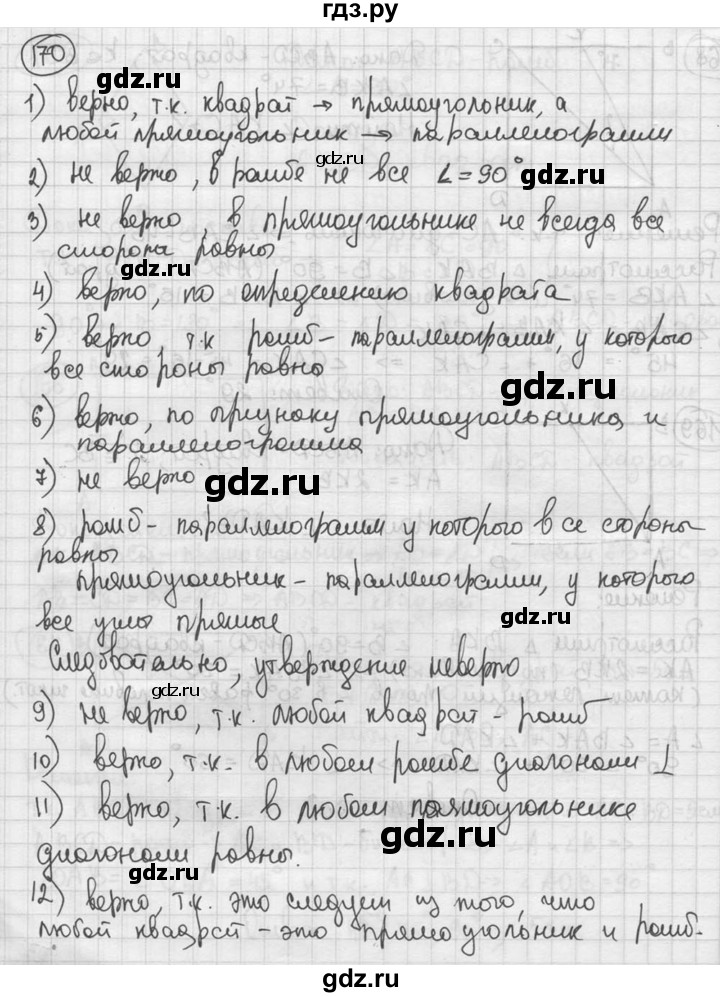 гдз.ру
170
gdz.ru
1) верно, т.к. квадрат → прямоугольник, а
любой прямоугольник → параллелограмм
gdz.ru
gdz.ru
2) не верно, в ромбе не все ∠=90°
3) не верно, в прямоугольнике не всегда все
стороны равны
gdz.ru
4) верно, по определению квадрата
5) верно, т.к ромб - параллелограмм, у которого
все стороны равно
gdz.ru
6) верно, по признаку прямоугольника и
параллелограмма
7) не верно
gdz.ru
8) ромб - параллелограмм у которого все стороны
равны
прямоугольник - параллелограмм, у которого
все углы прямые
gdz.ru
Следовательно, утверждение неверно
gdz.ru
9) не верно, т.к. любой квадрат - ромб
10) верно, т.к. в любом ромбе диагонали ⊥
11) верно, т.к. в любом прямоугольнике
gdz.ru
диагонали равны.
12) верно, т.к. это следует из того, что
gdz.ru
любой квадрат - это прямоугольник и ромб.
gdz.ru